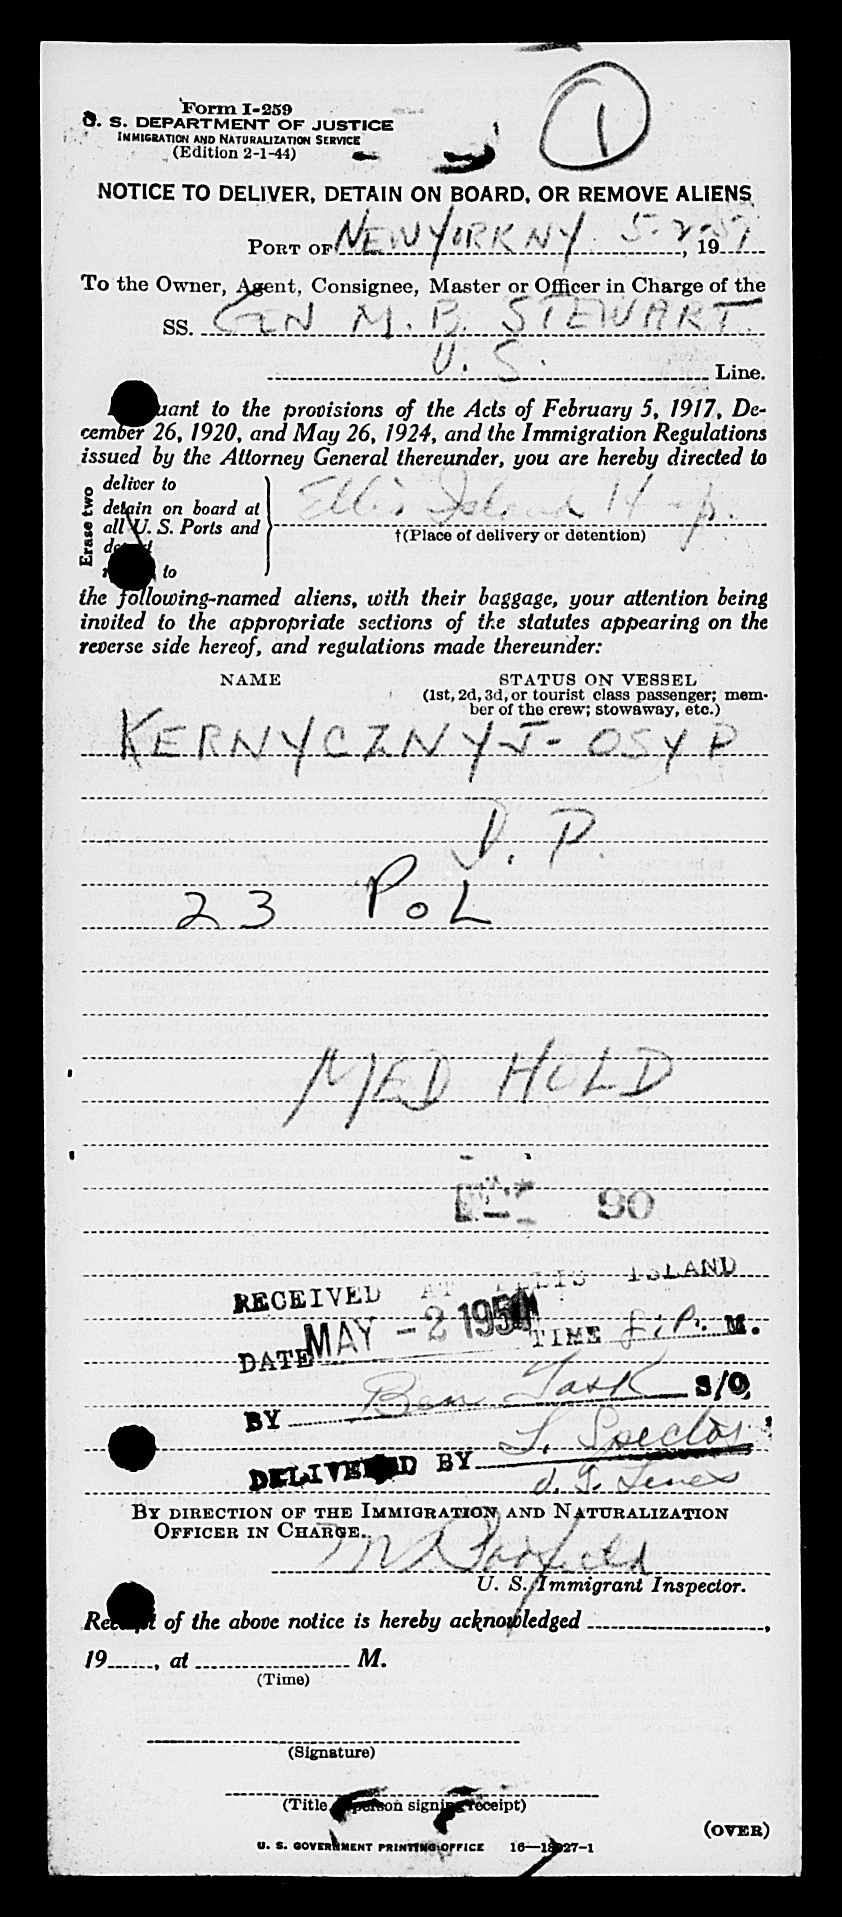 1
Form I-259
U. S. DEPARTMENT OF JUSTICE
IMMIGRATION AND NATURALIZATION SERVICE
(Edition 2-1-44)
NOTICE TO DELIVER, DETAIN ON BOARD, OR REMOVE ALIENS
PORT OF NEW YORK NY 5-2-51, 19
To the Owner, Agent, Consignee, Master or Officer in Charge of the
SS. GEN M. B. STEWART
U. S. Line.
uant to the provisions of the Acts of February 5, 1917, De-
cember 26, 1920, and May 26, 1924, and the Immigration Regulations
issued by the Attorney General thereunder, you are hereby directed to
Erase two
deliver to
detain on board at
all U. S. Ports and
to
Ellis Island Hosp.
†(Place of delivery or detention)
the following-named aliens, with their baggage, your attention being
invited to the appropriate sections of the statutes appearing on the
reverse side hereof, and regulations made thereunder:
NAME STATUS ON VESSEL
(1st, 2d, 3d, or tourist class passenger; mem-
ber of the crew; stowaway, etc.)
KERNYCZNYJ - OSYP
D. P.
23 POL
MED HOLD
90
RECEIVED AT ELLIS ISLAND
DATE MAY - 2 195 TIME P. M.
BY Ben Task S/O
DELIVERED BY
BY DIRECTION OF THE IMMIGRATION AND NATURALIZATION
OFFICER IN CHARGE.
U. S. Immigrant Inspector.
Receipt of the above notice is hereby acknowledged ,
19 , at M.
(Time)
(Signature)
(Title person signing receipt)
(OVER)
U. S. GOVERNMENT PRINTING OFFICE 16—18027-1